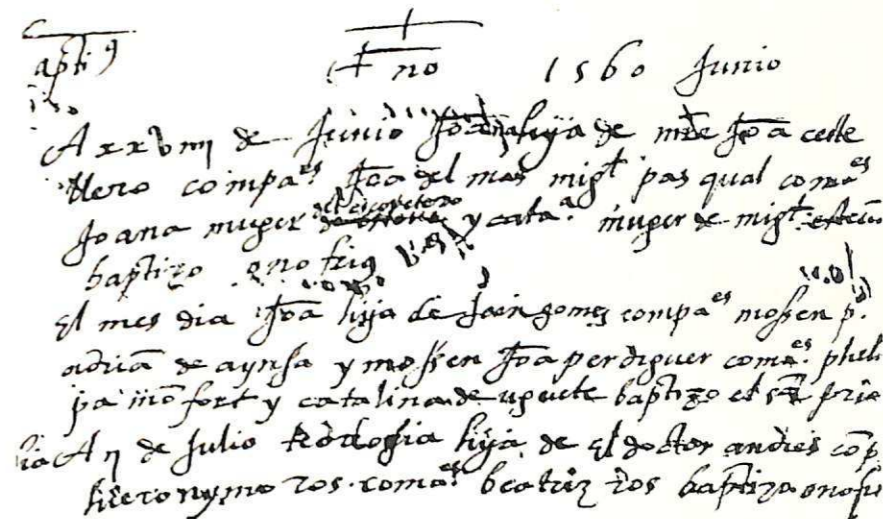 apti⁹ no 1560 Junio
A xxviij de Junio Joana hija de mre Joa celle
llero compa.es Joa del mas migl. pasqual coma.es
Joana muger del escopetero y cata.a muger de migl.
baptizo onofrius
El mes dia Joa hija de Jain gomez compa.es mossen p.
adriā de aynsa y mossen Joa perdiguer coma.es pheli
pa mōfort y catalina de uguete baptizo el sr. prior
A ij de Julio Teodosia hija de El doctor andres cōp
hieronymo ros. coma.es beatriz ros baptizo onofri